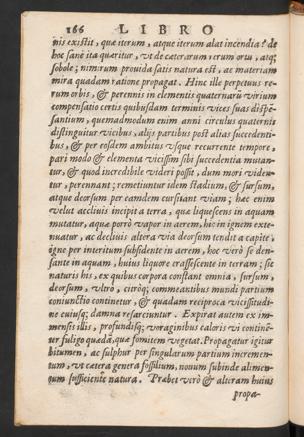 166 LIBRO
nis existit, quæ iterum, atque iterum alat incendia? de
hoc sanè ita quæritur, vt de cæterarum rerum ortu, atq;
sobole; nimirum prouida satis natura est, ac materiam
mira quadam ratione propagat. Hinc ille perpetuus re-
rum orbis, & perennis in elementis quaternarũ virium
compensatio certis quibusdam terminis vices suas dispẽ-
santium, quemadmodum enim anni circulus quaternis
distinguitur vicibus, alijs partibus post alias succedenti-
bus, & per eosdem ambitus vsque recurrente tempore,
pari modo & elementa vicissim sibi succedentia mutan-
tur, & quod incredibile videri possit, dum mori viden-
tur, perennant; remetiuntur idem stadium, & sursum,
atque deorsum per eamdem cursitant viam; hæc enim
velut accliuis incipit a terra, quæ liquescens in aquam
mutatur, aquæ porrò vapor in aerem, hic in ignem exte-
nuatur, ac decliuis altera via deorsum tendit a capite,
igne per interitum subsidente in aerem, hoc verò se den-
sante in aquam, huius liquore crassescente in terram; sic
naturis his, ex quibus corpora constant omnia, sursum,
deorsum, vltrò, citròq; commeantibus mundi partium
coniunctio continetur, & quadam reciproca vicissitudi-
ne cuiusq; damna resarciuntur. Expirat autem ex im-
mensis illis, profundisq; voraginibus caloris vi continẽ-
ter fuligo quædã, quæ fomitem vegetat. Propagatur igitur
bitumen, ac sulphur per singularum partium incremen-
tum, vt cætera genera fossilium, nouum subinde alimen-
tum sufficiente natura. Præbet verò & alteram huius
propa-